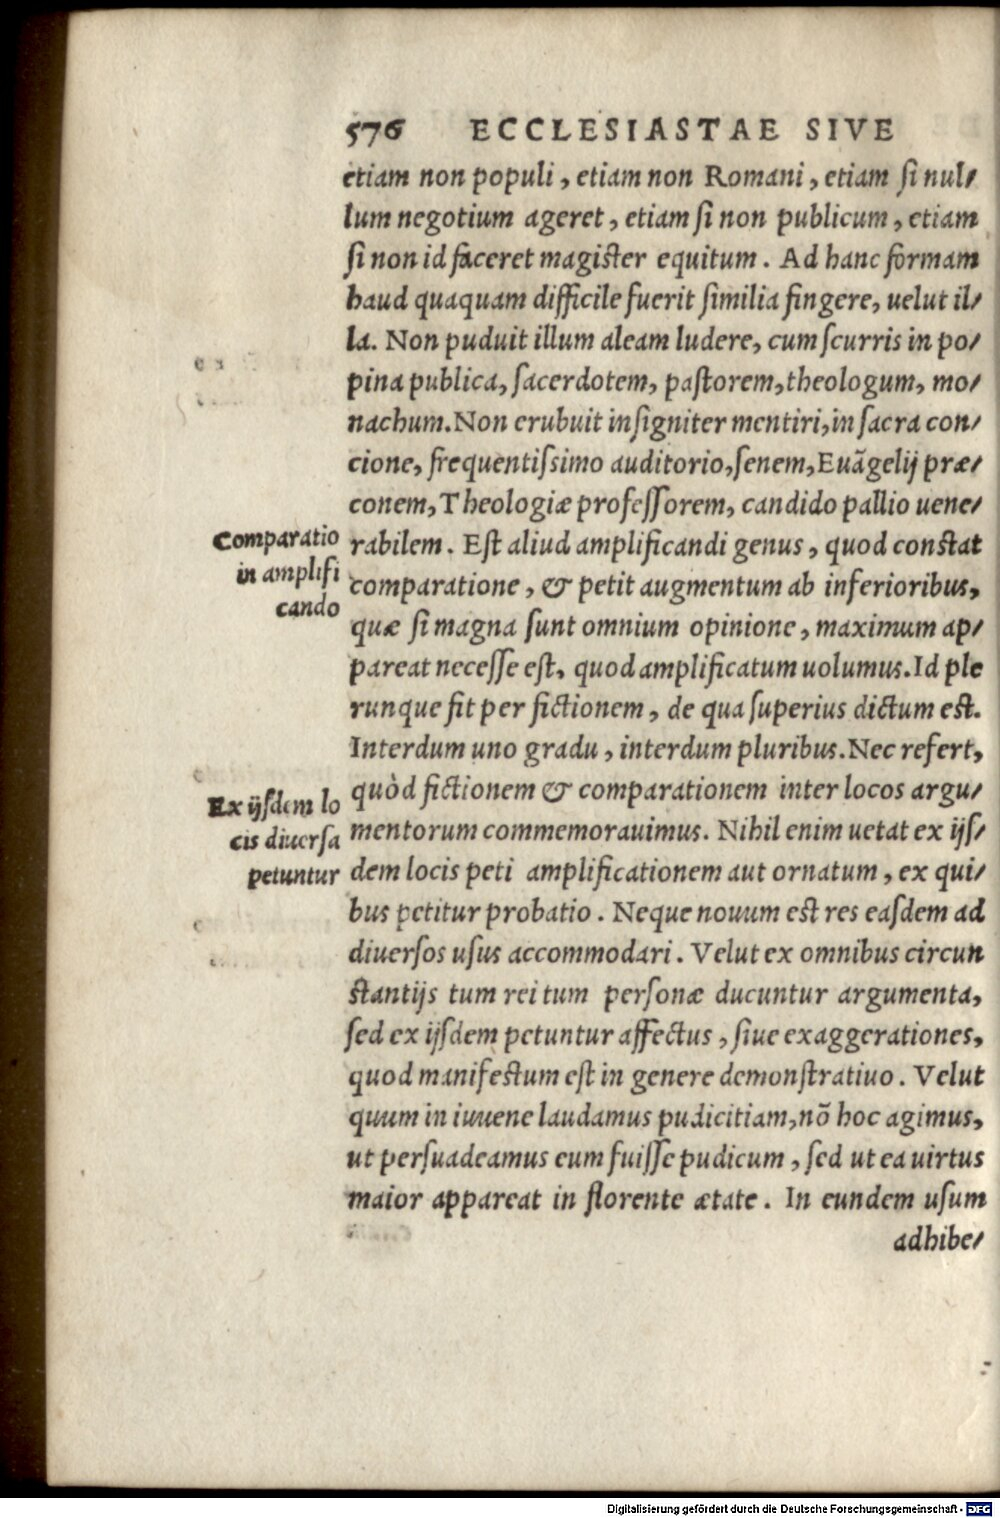 576 ECCLESIASTAE SIVE
etiam non populi, etiam non Romani, etiam si nul/
lum negotium ageret, etiam si non publicum, etiam
si non id faceret magister equitum. Ad hanc formam
haud quaquam difficile fuerit similia fingere, uelut il/
la. Non puduit illum aleam ludere, cum scurris in po/
pina publica, sacerdotem, pastorem, theologum, mo/
nachum. Non erubuit insigniter mentiri, in sacra con/
cione, frequentissimo auditorio, senem, Euãgelij præ/
conem, Theologiæ professorem, candido pallio uene/
Comparatio
in amplifi
cando
rabilem. Est aliud amplificandi genus, quod constat
comparatione, & petit augmentum ab inferioribus,
quæ si magna sunt omnium opinione, maximum ap/
pareat necesse est, quod amplificatum uolumus. Id ple
runque fit per fictionem, de qua superius dictum est.
Interdum uno gradu, interdum pluribus. Nec refert,
Ex ijsdem lo
cis diuersa
petuntur
quòd fictionem & comparationem inter locos argu/
mentorum commemorauimus. Nihil enim uetat ex ijs/
dem locis peti amplificationem aut ornatum, ex qui/
bus petitur probatio. Neque nouum est res easdem ad
diuersos usus accommodari. Velut ex omnibus circun
stantijs tum rei tum personæ ducuntur argumenta,
sed ex ijsdem petuntur affectus, siue exaggerationes,
quod manifestum est in genere demonstratiuo. Velut
quum in iuuene laudamus pudicitiam, nõ hoc agimus,
ut persuadeamus eum fuisse pudicum, sed ut ea uirtus
maior appareat in florente ætate. In eundem usum
adhibe/
Digitalisierung gefördert durch die Deutsche Forschungsgemeinschaft - DFG